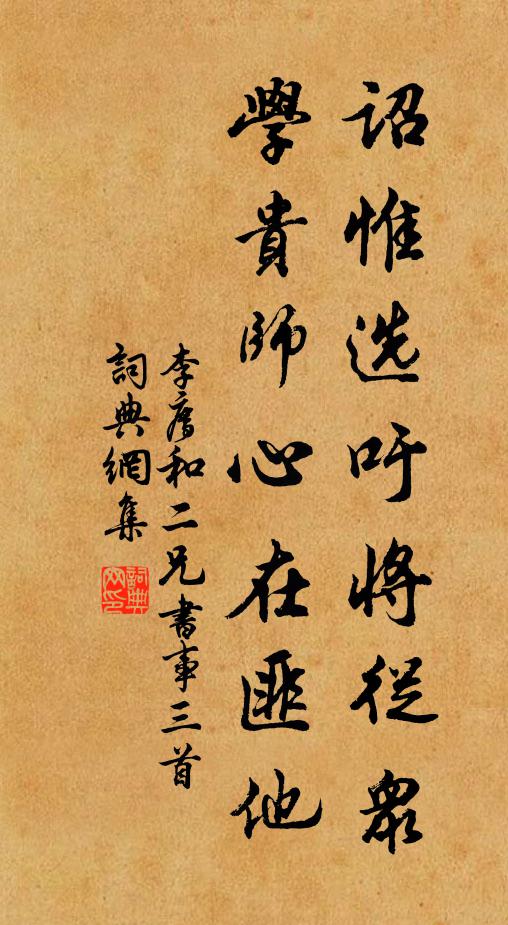 詔惟选吁將從眾
學貴師心在匪他
李和二兄書事三首
詞典網集
詞典网印